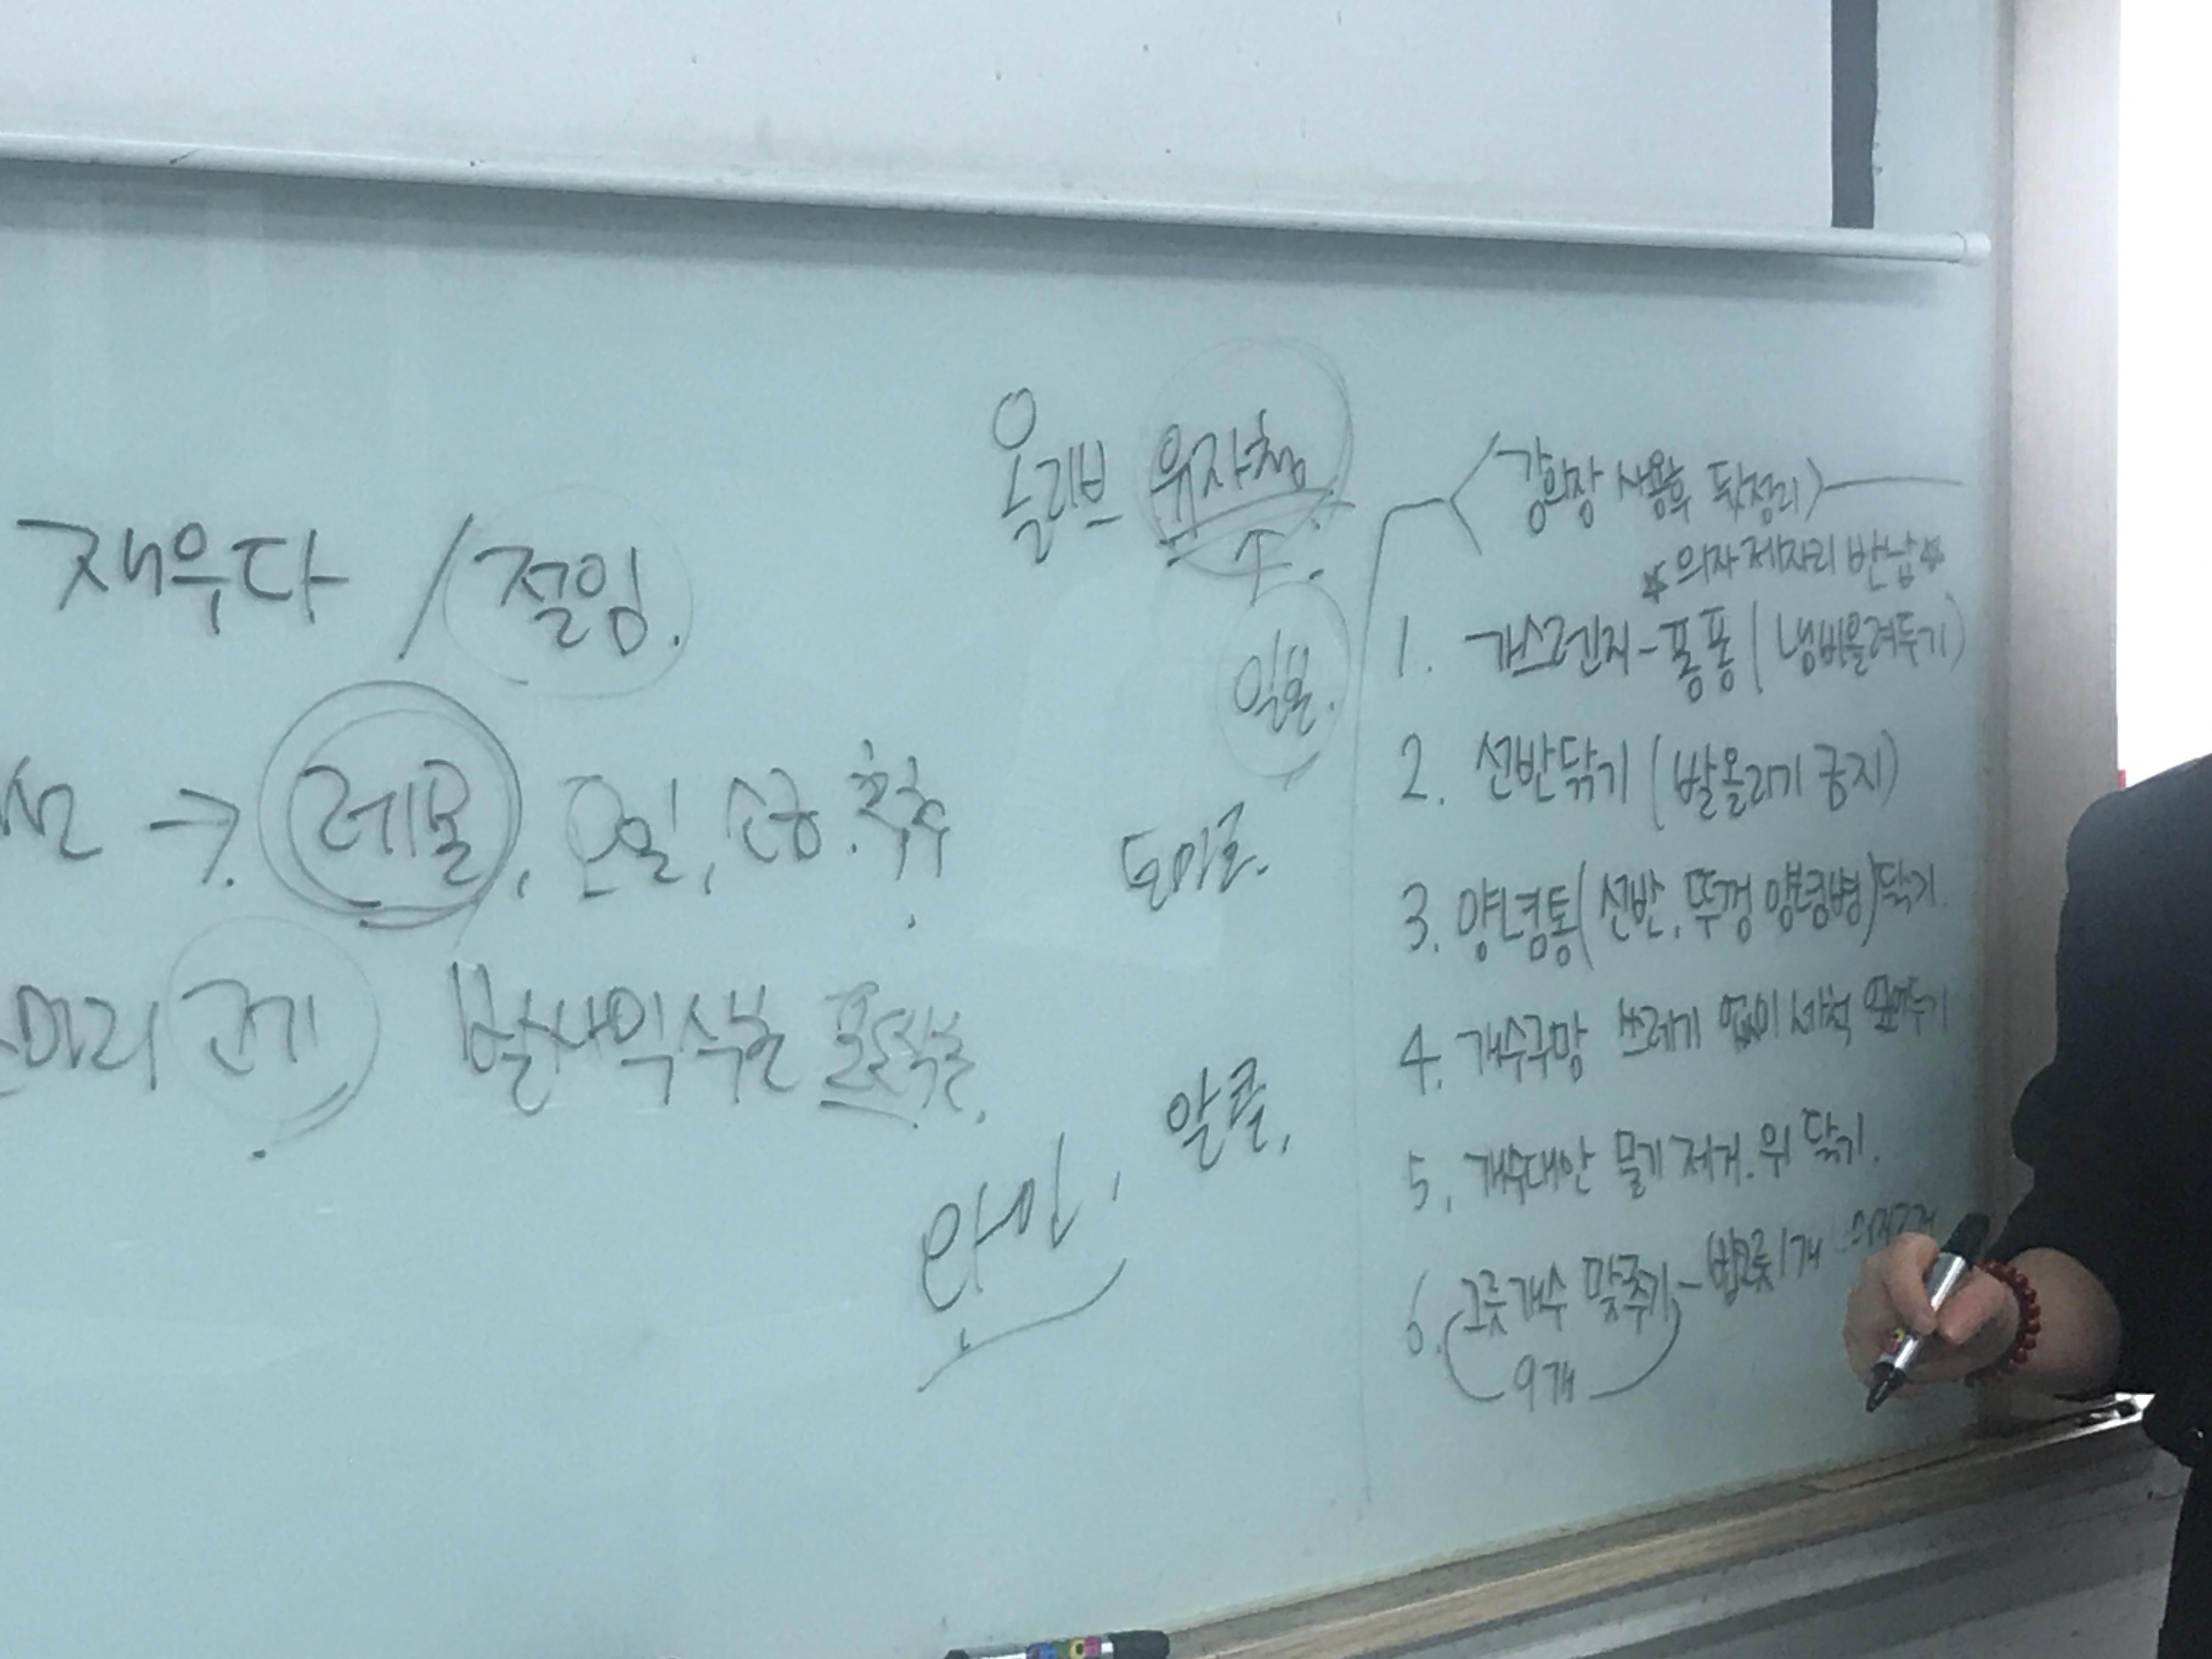 재우다 / 절임.
올리브 유자청
일본.
→ 레몬, 오일, 소금. 후추
마리 고기 발사믹식초
도야글.
와인, 알콜,
강의장 사용후 뒷정리
* 의자 제자리 반납 *
1. 개스렌지 - 퐁퐁 ( 냄비올려두기 )
2. 선반닦기 ( 발올리기 금지 )
3. 양념통 ( 선반, 뚜껑 양념병 ) 닦기.
4. 개수구망 쓰레기 없이 세척 엎어두기
5. 개수대안 물기 제거. 위 닦기.
6. 그릇개수 맞추기 - 밥그릇1개
9개